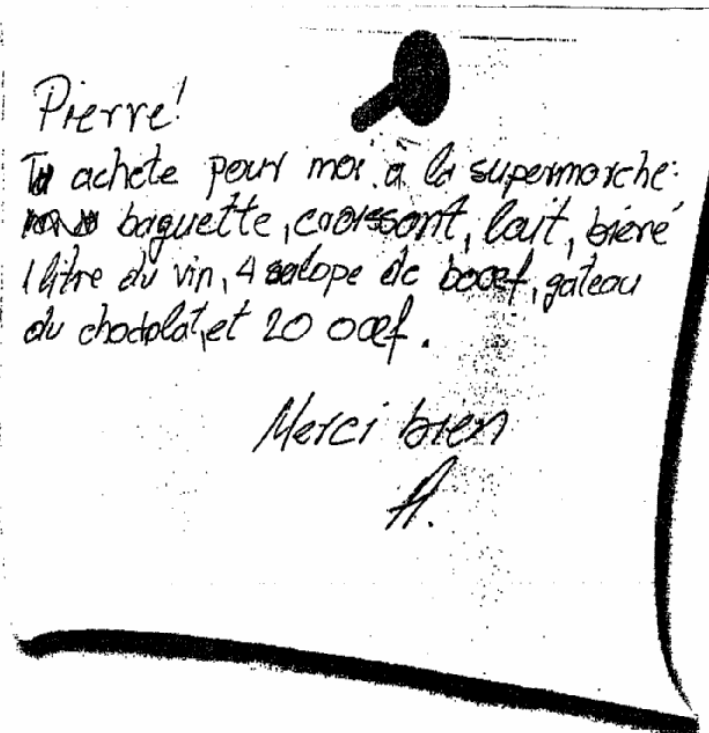 Pierre!
Tu achete pour moi à la supermarche:
baguette, croissont, lait, bière
1 litre du vin, 4 salope de boœf, gateau
du chocolat, et 20 oœf.
Merci bien
A.